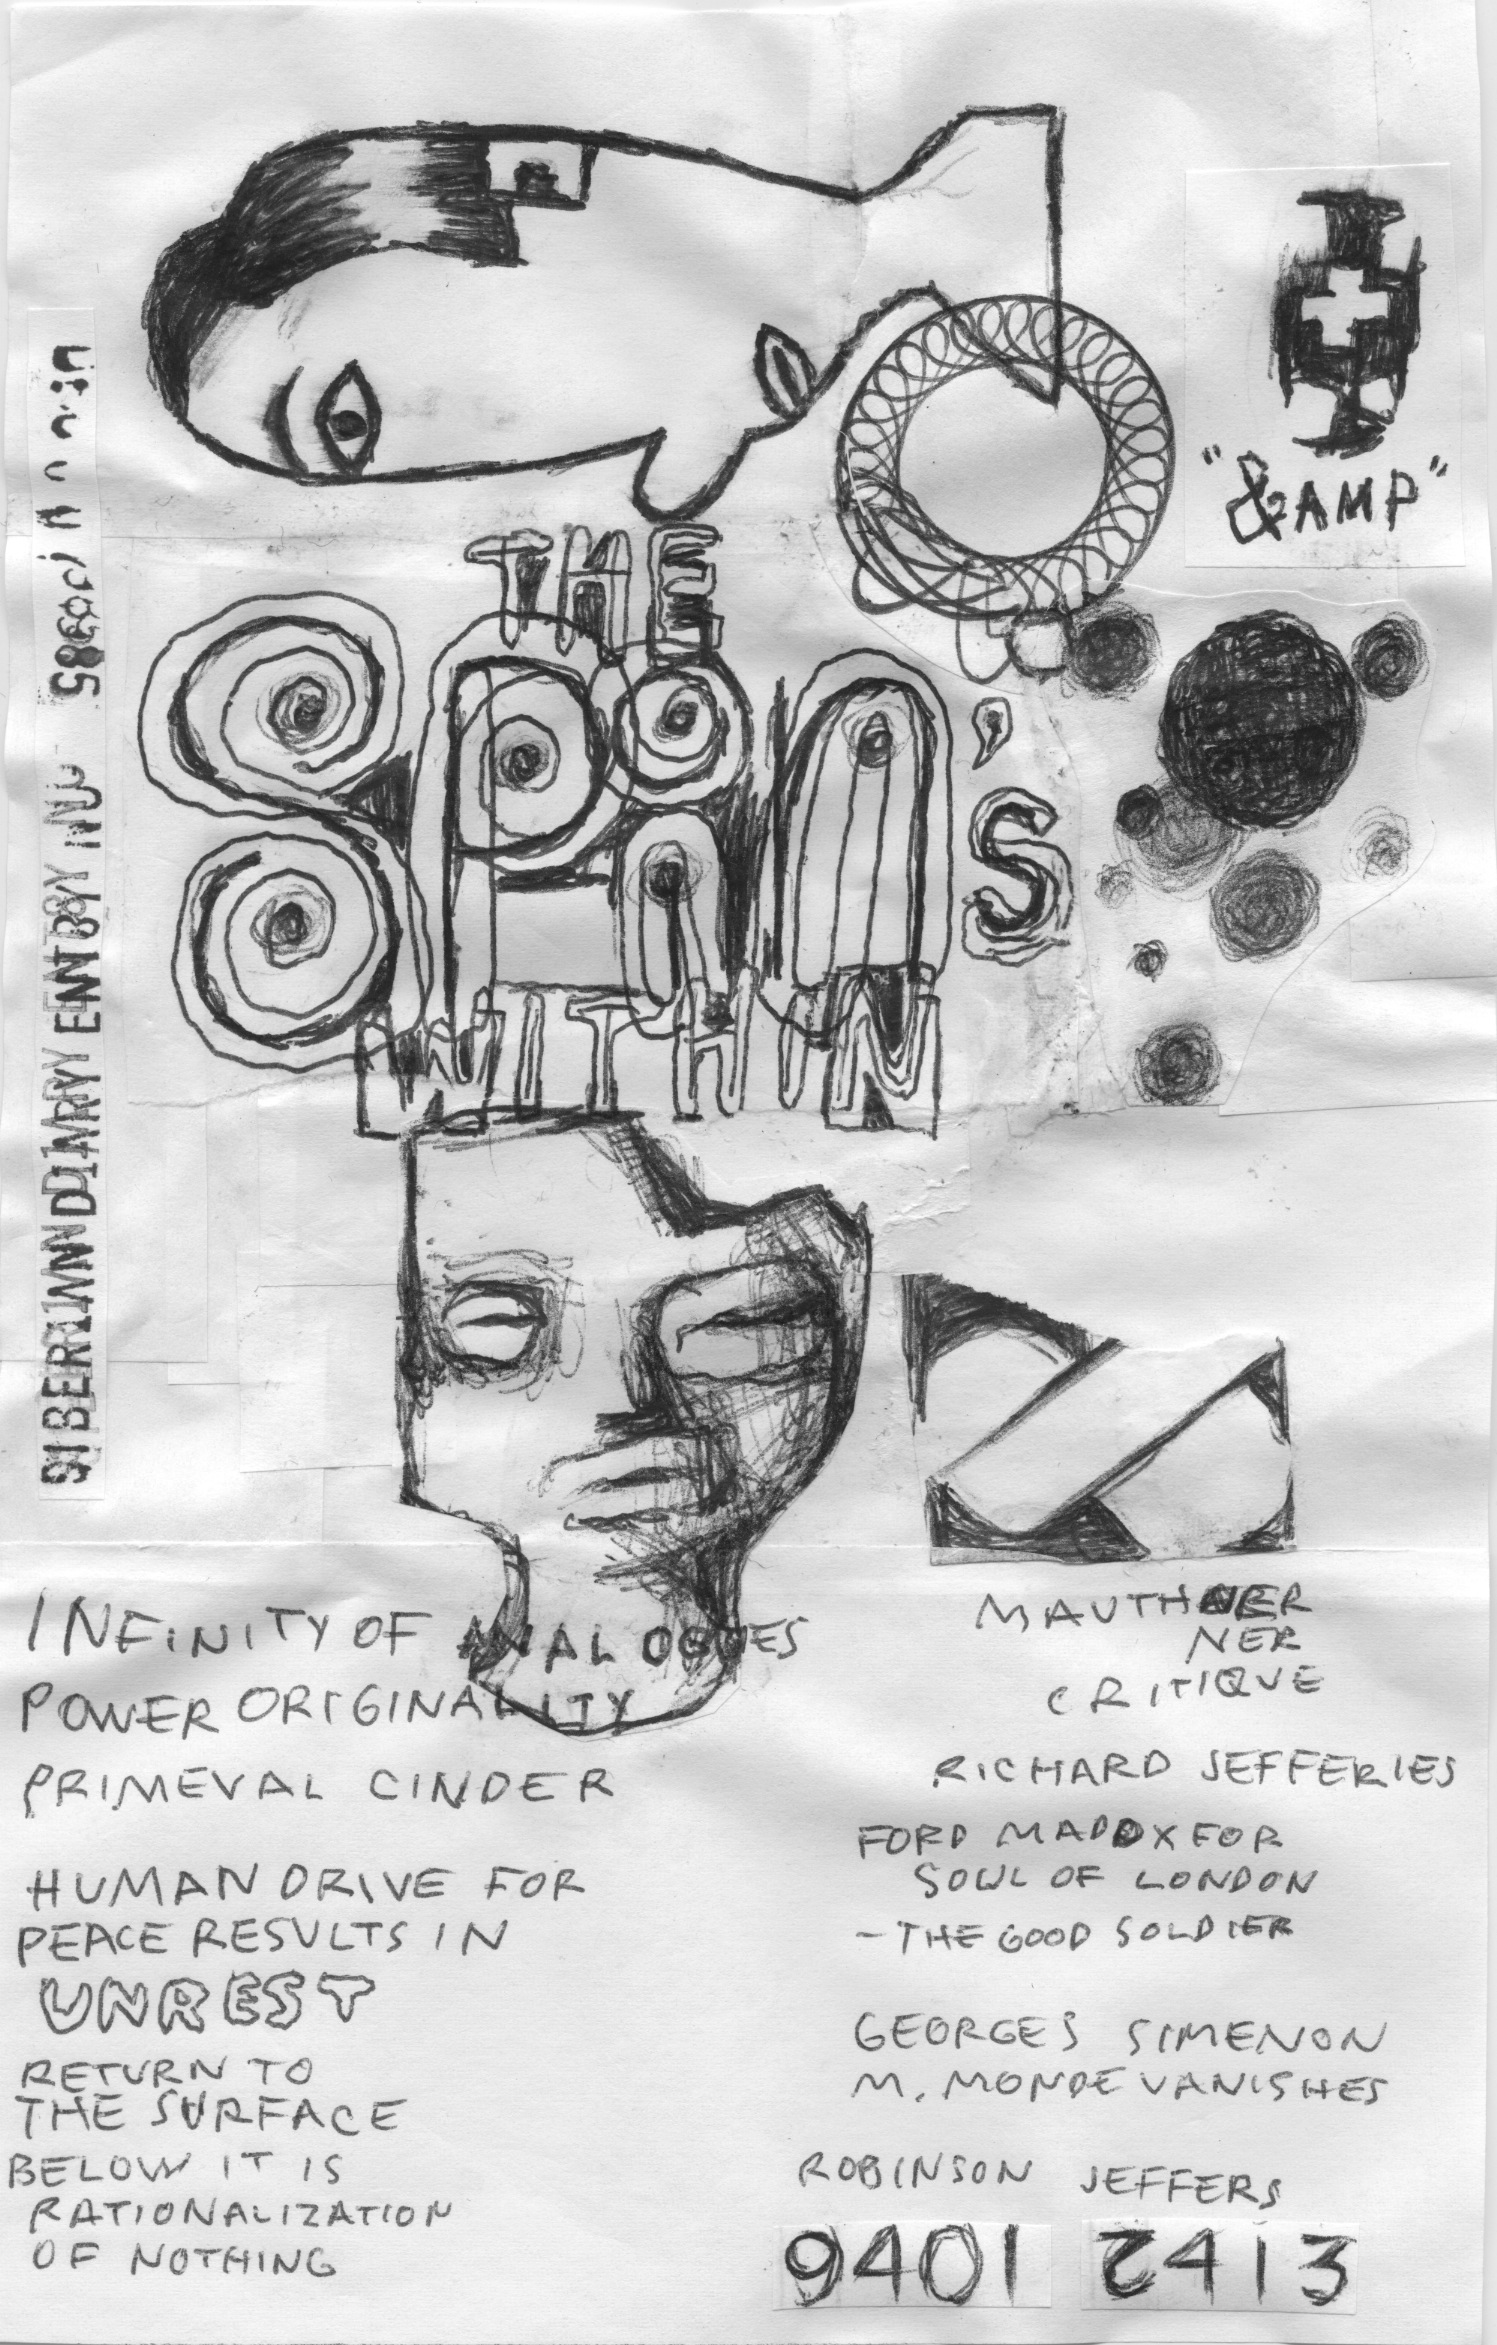 "&AMP"
THE
SPAN'S
WITHIN
INFINITY OF ANALOGUES
POWER ORIGINALITY
PRIMEVAL CINDER
HUMAN DRIVE FOR
PEACE RESULTS IN
UNREST
RETURN TO
THE SURFACE
BELOW IT IS
RATIONALIZATION
OF NOTHING
MAUTHNER
NER
CRITIQUE
RICHARD JEFFERIES
FORD MADOX FOR
SOUL OF LONDON
- THE GOOD SOLDIER
GEORGES SIMENON
M. MONDE VANISHES
ROBINSON JEFFERS
9401 2413